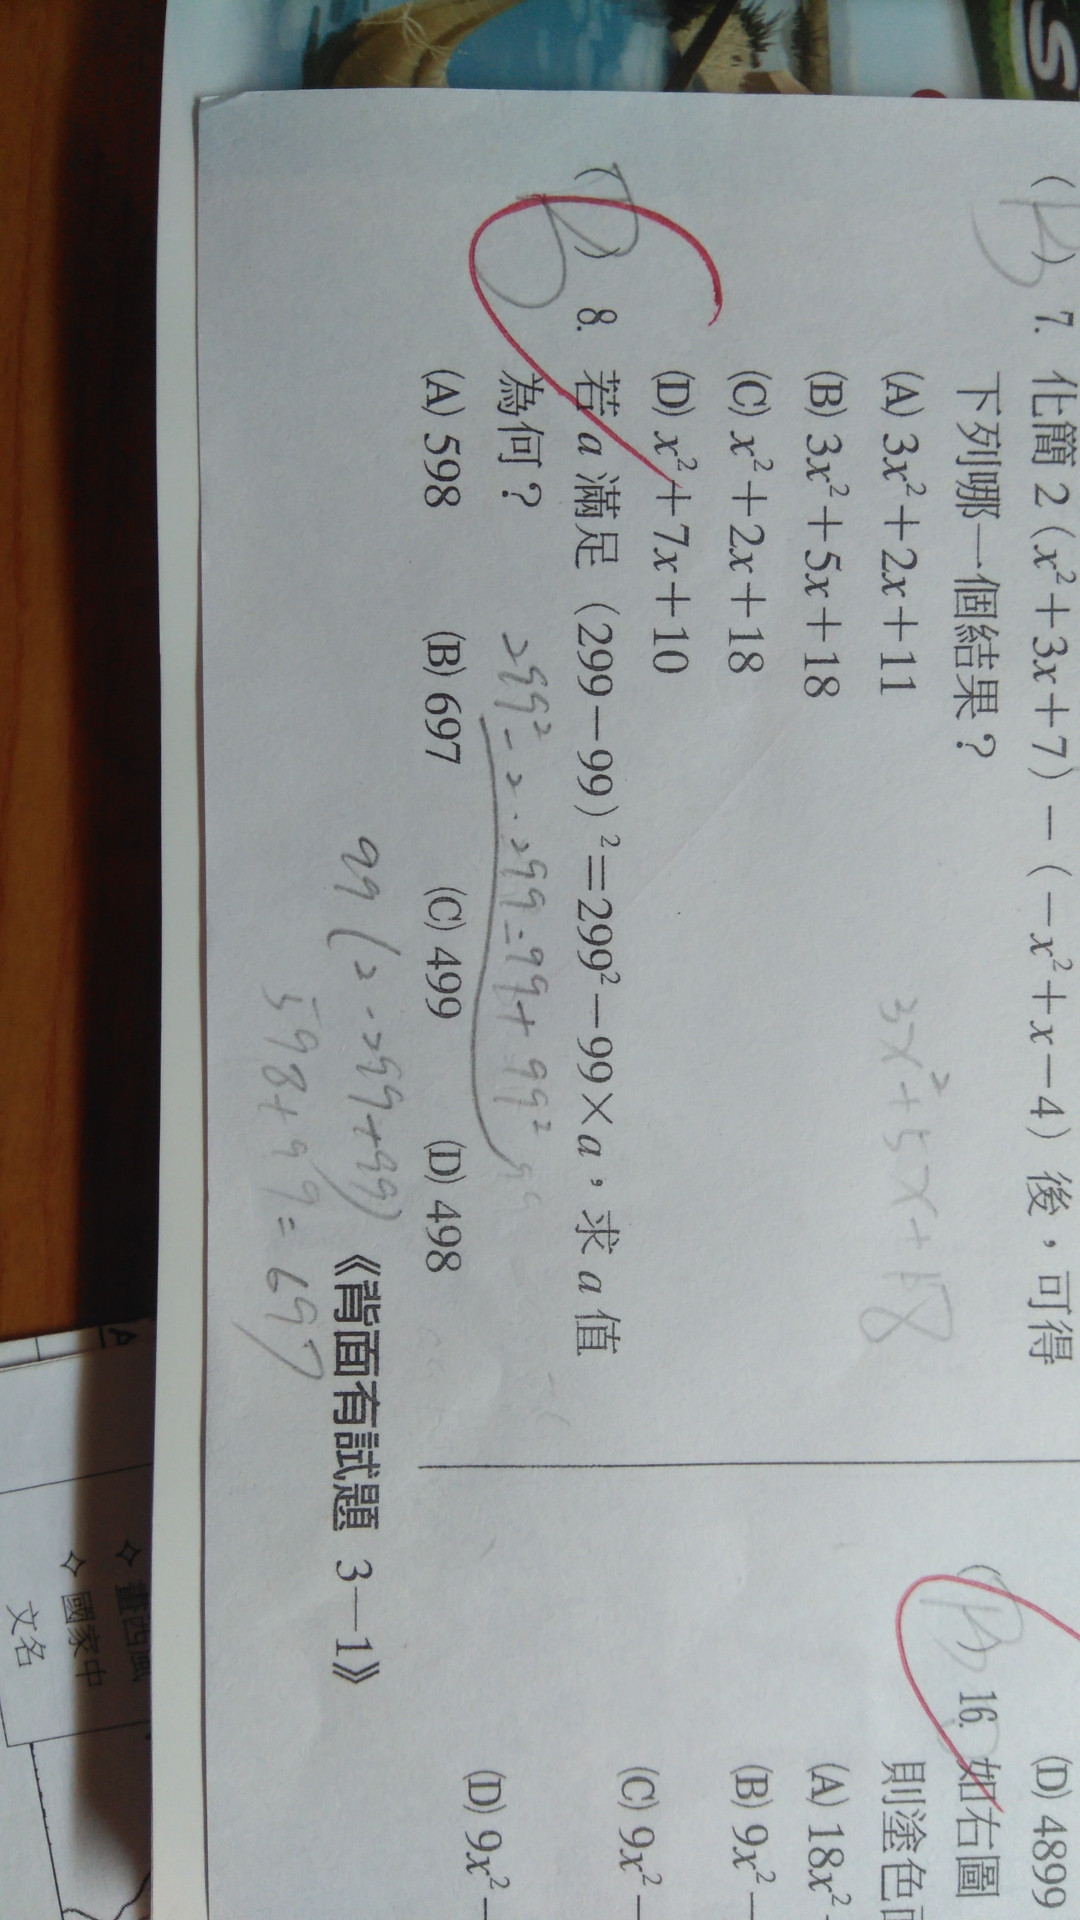 S
(B) 7. 化簡 2(x²+3x+7)－(－x²+x－4)後，可得
下列哪一個結果？
(A) 3x²+2x+11
(B) 3x²+5x+18
(C) x²+2x+18
(D) x²+7x+10
3x²+5x+18
(B) 8. 若 a 滿足 (299－99)²＝299²－99×a，求 a 值
為何？
B
299²－2·299=99+99²
(A) 598 (B) 697 (C) 499 (D) 498
99(2·299+99)
598+99=697
《背面有試題 3－1》
(D) 4899
(B) 16. 如右圖
則塗色
(A) 18x²
(B) 9x²－
(C) 9x²－
(D) 9x²－
畫西風
國家中
文名